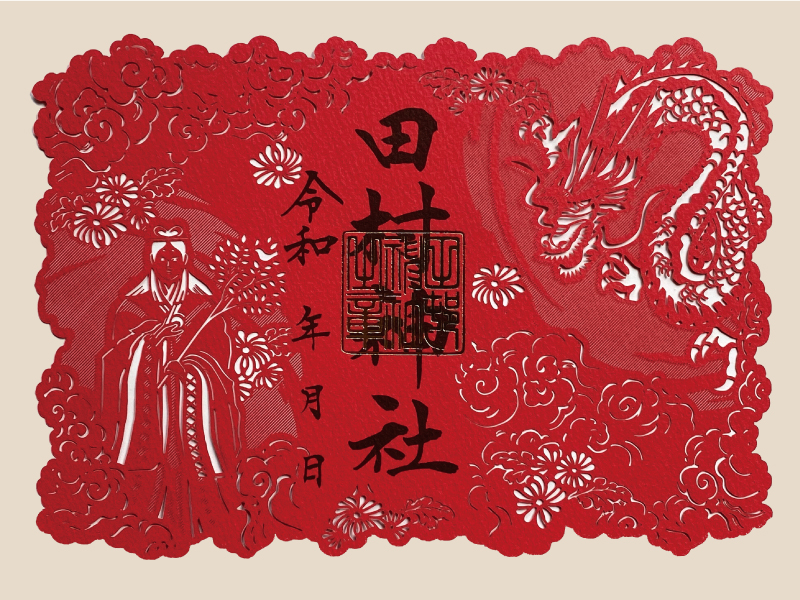 田村神社
令和 年 月 日